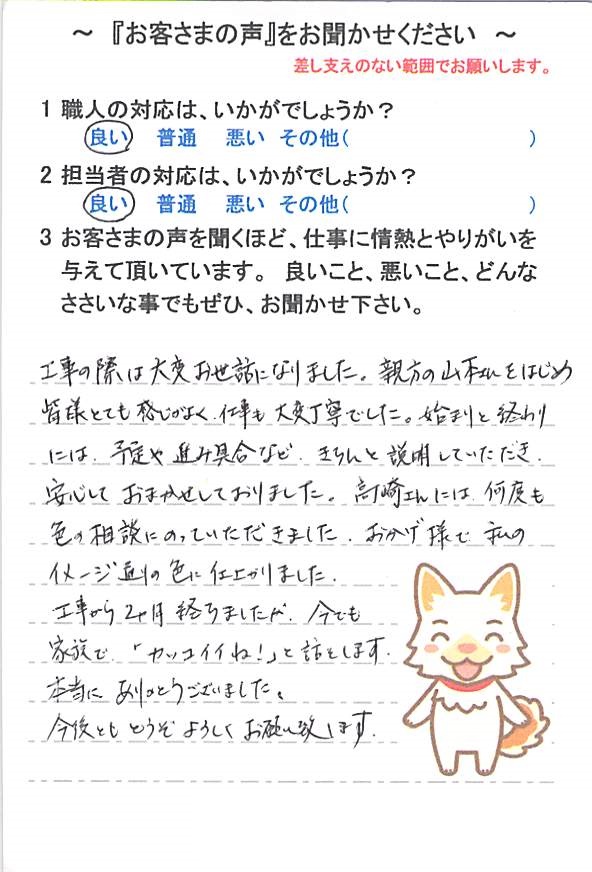 ～ 『お客さまの声』をお聞かせください ～
差し支えのない範囲でお願いします。
1 職人の対応は、いかがでしょうか？
良い 普通 悪い その他( )
2 担当者の対応は、いかがでしょうか？
良い 普通 悪い その他( )
3 お客さまの声を聞くほど、仕事に情熱とやりがいを
与えて頂いています。 良いこと、悪いこと、どんな
ささいな事でもぜひ、お聞かせ下さい。
工事の際は大変お世話になりました。親方の山本さんをはじめ
皆様とても感じがよく、仕事も大変丁寧でした。始まりと終わり
には、予定や進み具合など、きちんと説明していただき、
安心しておまかせしておりました。高崎さんには、何度も
色の相談にのっていただきました。おかげ様で私の
イメージ通りの色に仕上がりました。
工事から2ヶ月経ちましたが、今でも
家族で、「カッコイイね!」と話をします。
本当にありがとうございました。
今後ともどうぞよろしくお願い致します。